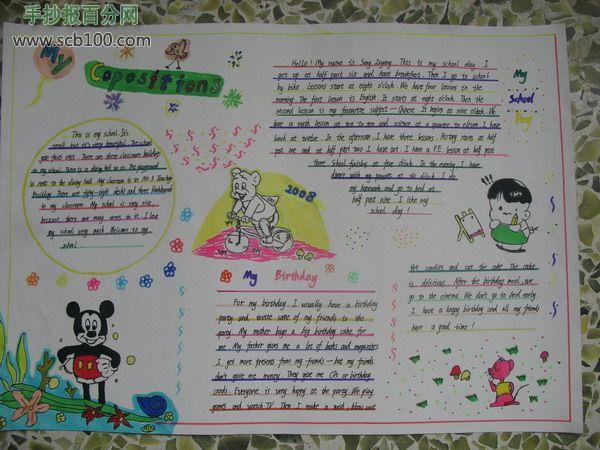 手抄报百分网
www.scb100.com
My
Copositions
This is my school. It's
small, but it's very beautiful. The school
year first exists. There are three classroom buildings
in my school. There is a dining hall in it. The playground
is next to the dining hall. My classroom is in No.3 Teaching
Building. There are fifty-eight deskd and three blackboards
in my classroom. My school is very nice,
because there are many trees in it. I love
my school very much. Welcome to my
school.
Hello! My name is Song Ziyang. This is my school day. I
get up at half past six and have breakfast. Then I go to school
by bike. Lessons start at eight o'clock. We have four lessons in the
morning. The first lesson is English. It starts at eight o'clock. Then the
second lesson is my favourite subject - Chinese. It begins at nine o'clock. We
have a math lesson at ten to ten and science at a quarter to eleven. I have
lunch at twelve. In the afternoon, I have three lessons. History starts at half
past one and at half past two I have art. I have a P.E. lesson at half past
three. School finishes at five o'clock. In the evening, I have
dinner with my parents at six o'clock. I do
my homework and go to bed at
half past nine. I like my
school day!
My
School
Day
2008
My Birthday
For my birthday, I usually have a birthday
party and invite some of my friends to the
party. My mother buys a big birthday cake for
me. My father gives me a lot of books and magazines.
I get more presents from my friends - but my friends
don't give me money. They give me CDs or birthday
cards. Everyone is very happy at the party. We play
games and watch TV. Then I make a wish, blow out
the candles and cut the cake. The cake
is delicious. After the birthday meal, we
go to the cinema. We don't go to bed early.
I have a happy birthday and all my friends
have a good time!